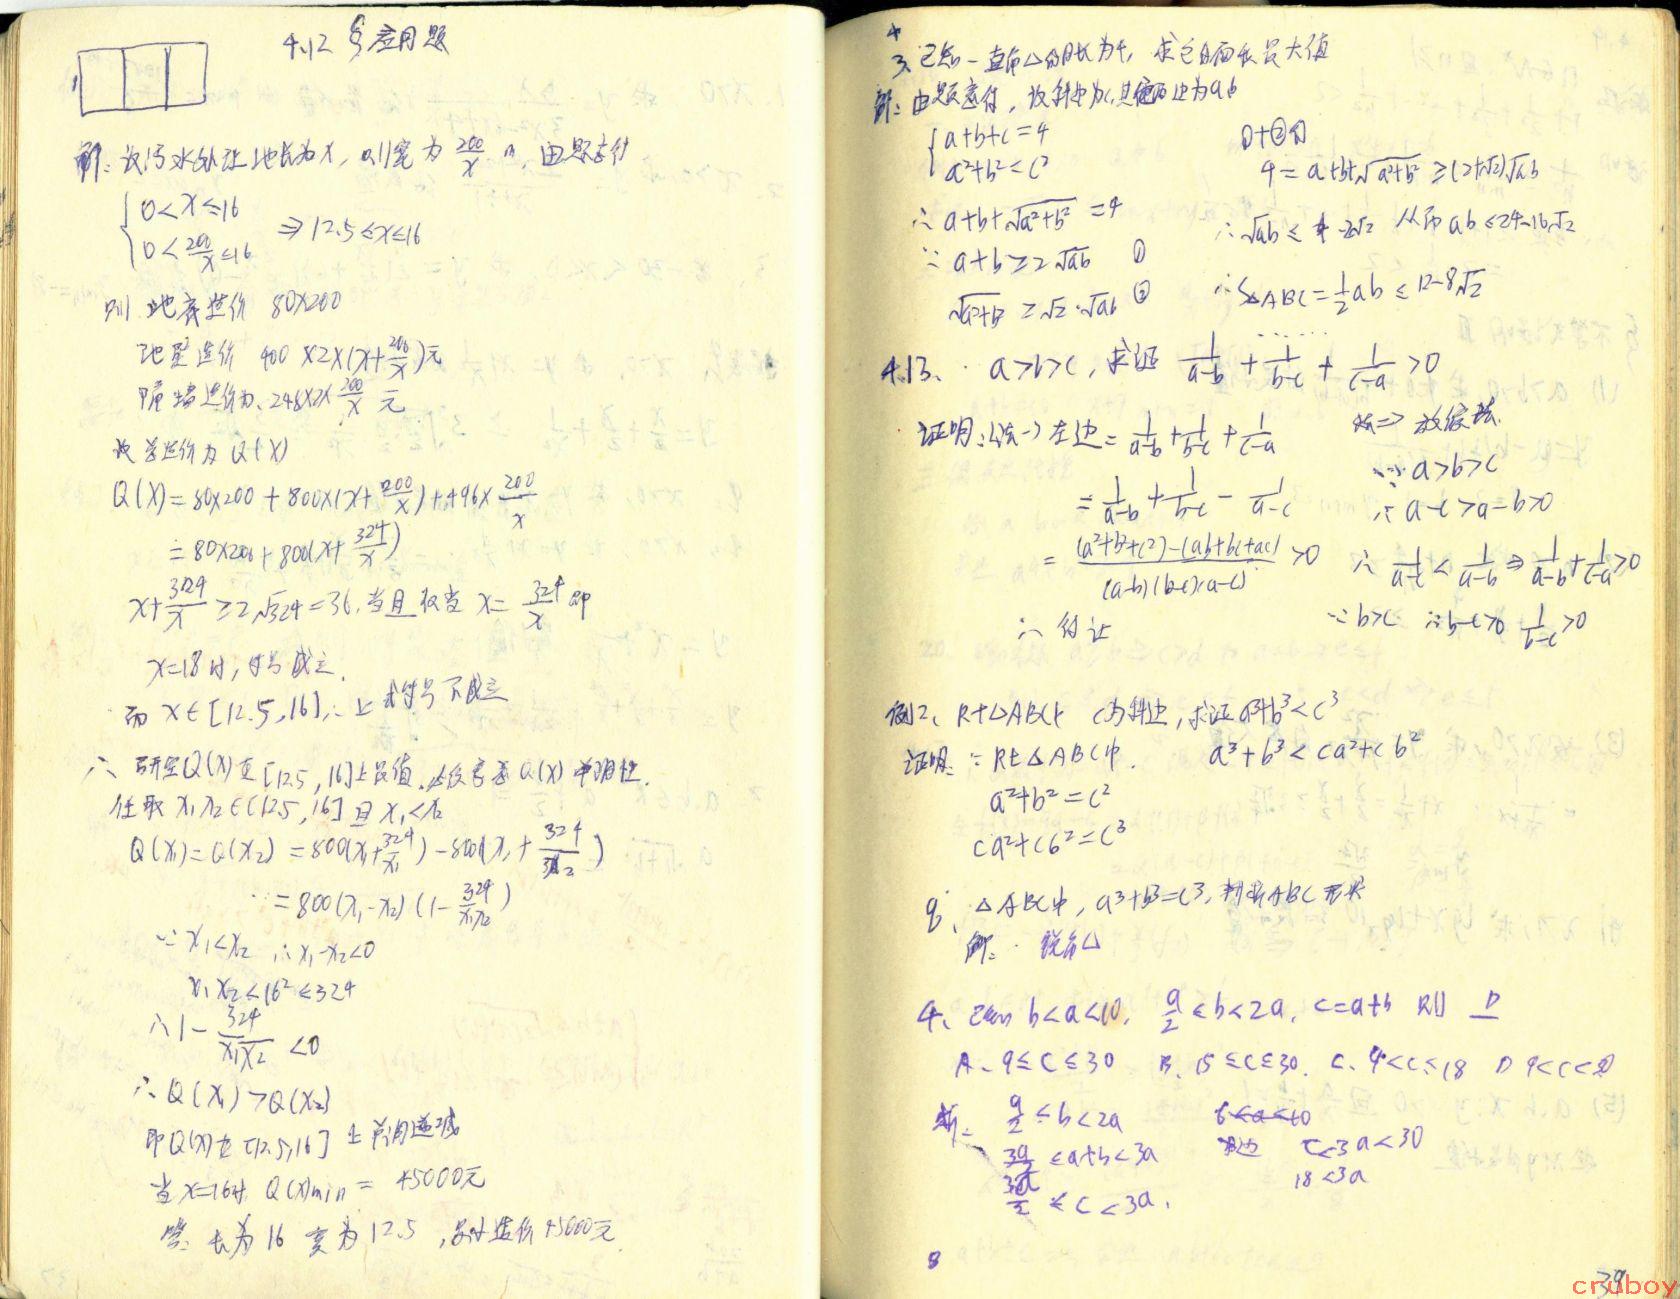 4.12 § 应用题
解: 设污水处理池长为x, 则宽为 200/x m, 由题意得
{ 0<x≤16
0<200/x≤16 ⇒ 12.5≤x≤16
则 池底造价 80×200
池壁造价 400×2×(x+200/x)元
隔墙造价为: 248×2×200/x 元
设总造价为Q(x)
Q(x)=80×200+800×(x+200/x)+496×200/x
=80×200+800(x+324/x)
x+324/x ≥2√324=36, 当且仅当 x=324/x 即
x=18时, 等号成立.
而 x∈[12.5,16], ∴上式等号不成立
∴ 研究Q(x)在[12.5,16]上最值, 必须考虑Q(x)单调性.
任取 x₁x₂∈[12.5,16] 且 x₁<x₂
Q(x₁)=Q(x₂) =800(x₁+324/x₁)-800(x₁+324/x₂)
=800(x₁-x₂)(1-324/x₁x₂)
∵x₁<x₂ ∴x₁-x₂<0
x₁x₂<16²≤324
∴1-324/x₁x₂<0
∴Q(x₁)>Q(x₂)
即Q(x)在[12.5,16]上单调递减
当x=16时 Q(x)min = 45000元
答: 长为16 宽为12.5, 最少造价45000元.
3. 已知一直角△的周长为4, 求它的面积最大值
解: 由题意得, 设斜边为c, 其他两边为a b
{ a+b+c=4
a²+b²=c²
∴ a+b+√a²+b² =4
∵ a+b≥2√ab ①
√a²+b² ≥√2·√ab ②
①+②得
4=a+b+√a²+b² ≥(2+√2)√ab
∴√ab≤4-2√2 从而ab≤24-16√2
∴S△ABC=1/2ab≤12-8√2
4.13. a>b>c, 求证 1/a-b + 1/b-c + 1/c-a >0
证明: (法一) 左边= 1/a-b + 1/b-c + 1/c-a
= 1/a-b + 1/b-c - 1/a-c
= (a²+b²+c²)-(ab+bc+ac)/(a-b)(b-c)(a-c) >0
∴ 得证
法二⇒ 放缩法.
∵ a>b>c
∴ a-c>a-b>0
∴ 1/a-c < 1/a-b ⇒ 1/a-b + 1/c-a >0
∵b>c ∴b-c>0 1/b-c>0
例2、Rt△ABC中 c为斜边, 求证a³+b³<c³
证明: ∵ Rt△ABC中. a³+b³<ca²+cb²
a²+b²=c²
ca²+cb²=c³
9、△ABC中, a³+b³=c³, 判断ABC形状
解: 锐角△
4、已知 b<a<10, a/2≤b<2a, c=a+b 则 D
A、9≤c≤30 B、15≤c≤30. C、9<c≤18 D 9<c<30
解: a/2≤b<2a 6<a<10
3a/2≤a+b<3a c<3a<30
3a/2≤c<3a. 18<3a
8
39
cruboy